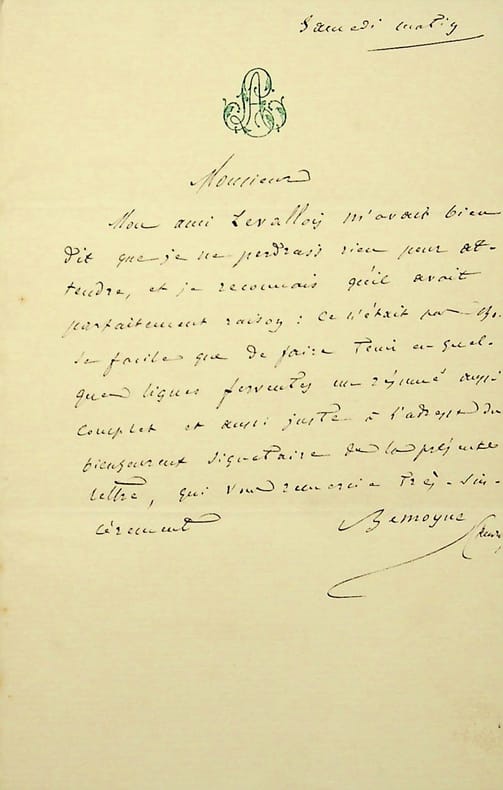 Samedi matin
AL
Monsieur
Mon ami Levallois m'avait bien
dit que je ne perdrais rien pour at-
tendre, et je reconnais qu'il avait
parfaitement raison : ce n'était pas cho-
se facile que de faire tenir en quel-
ques lignes ferventes un résumé aussi
complet et aussi juste à l'adresse du
bienheureux signataire de la présente
lettre, qui vous remercie très-sin-
cèrement
Lemoyne